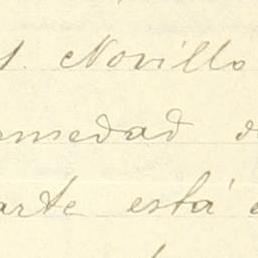 Novillo
medad
arte está